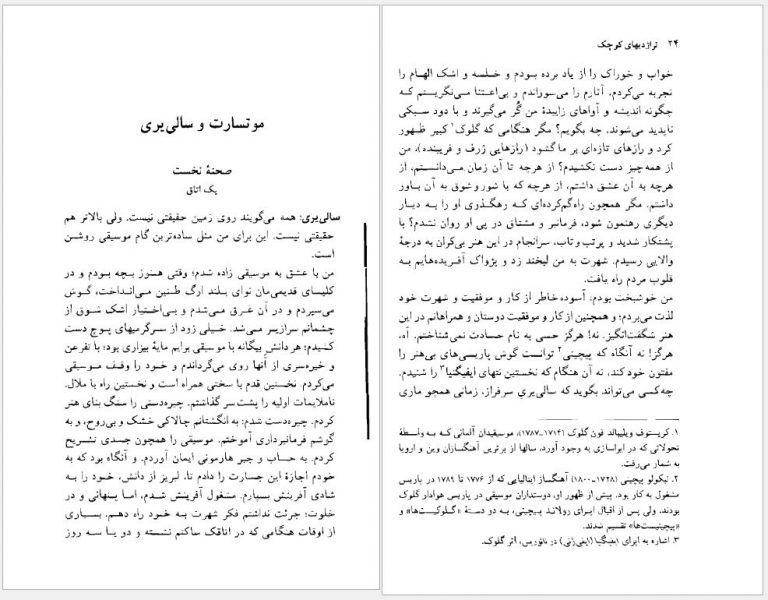 موتسارت و سالی‌یری
صحنهٔ نخست
یک اتاق
سالی‌یری: همه می‌گویند روی زمین حقیقتی نیست. ولی بالاتر هم
حقیقتی نیست. این برای من مثل ساده‌ترین گام موسیقی روشن
است.
من با عشق به موسیقی زاده شدم؛ وقتی هنوز بچه بودم و در
کلیسای قدیمی‌مان نوای بلند ارگ طنین می‌انداخت، گوش
می‌سپردم و در آن غرق می‌شدم و بی‌اختیار اشک شوق از
چشمانم سرازیر می‌شد. خیلی زود از سرگرمیهای پوچ دست
کشیدم؛ هر دانش بیگانه با موسیقی برایم مایهٔ بیزاری بود؛ با تفرعن
و خیره‌سری از آنها روی می‌گرداندم و خود را وقف موسیقی
می‌کردم. نخستین قدم با سختی همراه است و نخستین راه با ملال.
ناملایمات اولیه را پشت‌سر گذاشتم. چیره‌دستی را سنگ بنای هنر
کردم. چیره‌دست شدم: به انگشتانم چالاکی خشک و بی‌روح، و به
گوشم فرمانبرداری آموختم. موسیقی را همچون جسدی تشریح
کردم. به حساب و جبر هارمونی ایمان آوردم. و آنگاه بود که به
خودم اجازهٔ این جسارت را دادم تا، لبریز از دانش، خود را به
شادی آفرینش بسپارم. مشغول آفرینش شدم، اما پنهانی و در
خلوت؛ جرئت نداشتم فکر شهرت به خود راه دهم. بسیاری
از اوقات هنگامی که در اتاقک ساکتم نشسته و دو یا سه روز
۲۴ تراژدیهای کوچک
خواب و خوراک را از یاد برده بودم و خلسه و اشک الهام را
تجربه می‌کردم، آثارم را می‌سوراندم و بی‌اعتنا می‌نگریستم که
چگونه اندیشه و آواهای زاییدهٔ من گُر می‌گیرند و با دود سبکی
ناپدید می‌شوند. چه بگویم؟ مگر هنگامی که گلوک۱ کبیر ظهور
کرد و رازهای تازه‌ای بر ما گشود (رازهایی ژرف و فریبنده)، من
از همه‌چیز دست نکشیدم؟ از هرچه تا آن زمان می‌دانستم، از
هرچه به آن عشق داشتم، از هرچه که با شور و شوق به آن باور
داشتم. مگر همچون راه‌گم‌کرده‌ای که رهگذری او را به دیار
دیگری رهنمون شود، فرمانبر و مشتاق در پی او روان نشدم؟ با
پشتکار شدید و پرتب و تاب، سرانجام در این هنر بی‌کران به درجهٔ
والایی رسیدم. شهرت به من لبخند زد و پژواک آفریده‌هایم به
قلوب مردم راه یافت.
من خوشبخت بودم: آسوده‌خاطر از کار و موفقیت و شهرت خود
لذت می‌بردم؛ و همچنین از کار و موفقیت دوستان و همراهانم در این
هنر شگفت‌انگیز. نه! هرگز حسی به نام حسادت نمی‌شناختم. آه،
هرگز! نه آنگاه که پیچینی۲ توانست گوش پاریسی‌های بی‌هنر را
مفتون خود کند، نه آن هنگام که نخستین نتهای ایفیگنیا۳ را شنیدم.
چه‌کسی می‌تواند بگوید که سالی‌یریِ سرفراز، زمانی همچو ماری
۱. کریستوف ویلیبالد فون گلوک (۱۷۱۴-۱۷۸۷)، موسیقیدان آلمانی که به واسطهٔ
تحولاتی که در اپراسازی به وجود آورد، سالها از برترین آهنگسازان وین و اروپا
به شمار می‌رفت.
۲. نیکولو پیچینی (۱۷۲۸-۱۸۰۰) آهنگساز ایتالیایی که از ۱۷۷۶ تا ۱۷۸۹ در پاریس
مشغول به کار بود. پیش از ظهور او، دوستداران موسیقی در پاریس هوادار گلوک
بودند، ولی پس از اقبال اپرای رولاند پیچینی، به دو دستهٔ «گلوکیست‌ها» و
«پیچینیست‌ها» تقسیم شدند.
۳. اشاره به اپرای ایفیگنیا (ایفی‌ژنی) در تائوریس، اثر گلوک.